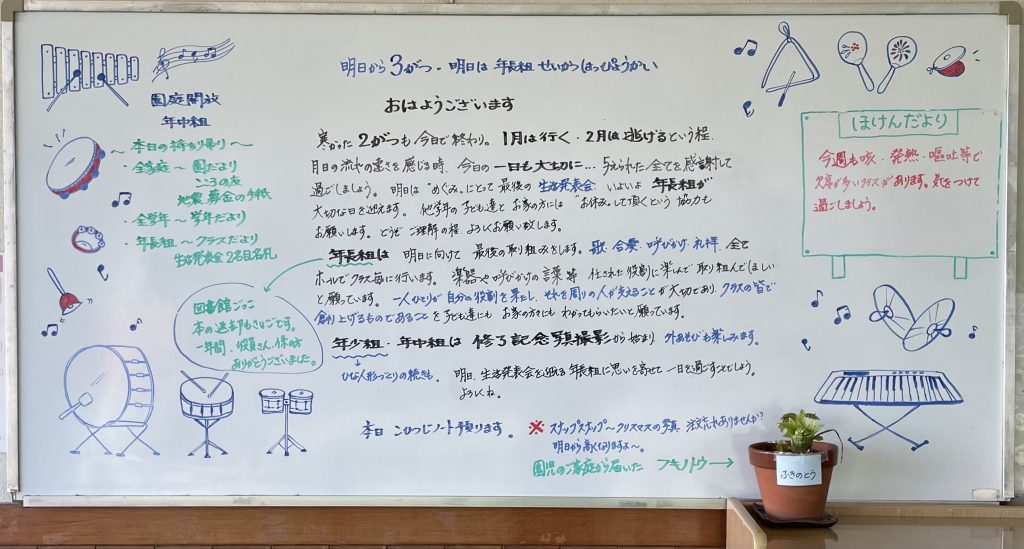 明日から3がつ・明日は年長組せいかつはっぴょうかい
園庭開放
年中組
〜本日の持ち帰り〜
・全家庭〜園だより
こころの座
地震募金の手紙
・全学年〜学年だより
・年長組〜クラスだより
生活発表会2名目名札
図書館ごっこ
本の返却もさいごです。
一年間、役員さん、係の方
ありがとうございました。
おはようございます
寒かった2がつも今日で終わり。1月は行く・2月は逃げるという程、
月日の流れの速さを感じる時、今日の一日も大切に…与えられた全てを感謝して
過ごしましょう。明日は"めぐみ"にとって最後の生活発表会 いよいよ年長組が
大切な日を迎えます。他学年の子ども達とお家の方には"お休み"して頂くという協力も
お願いします。どうぞご理解の程よろしくお願い致します。
年長組は 明日に向けて最後の取り組みをします。歌・合奏・呼びかけ・礼拝、全て
ホールでクラス毎に行います。楽器や呼びかけの言葉等 任された役割に楽しんで取り組んでほしい
と願っています。一人ひとりが自分の役割を果たし、それを周りの人が支えることが大切であり、クラスの皆で
創り上げるものであることを子ども達にもお家の方々にもわかってもらいたいと願っています。
年少組・年中組は 修了記念写真撮影から始まり 外あそびも楽しみます。
ひな人形づくりの続きも。
明日、生活発表会を迎える年長組に思いを寄せて一日を過ごすことでしょう。
よろしくね。
本日こひつじノート預ります。
※スナップスナップ〜クリスマスの写真 注文忘れありませんか?
明日から高くなりますよ〜。
園児のご家庭から届いた フキノトウ→
ほけんだより
今週も咳・発熱・嘔吐等で
欠席が多いクラスがあります。気をつけて
過ごしましょう。
ふきのとう